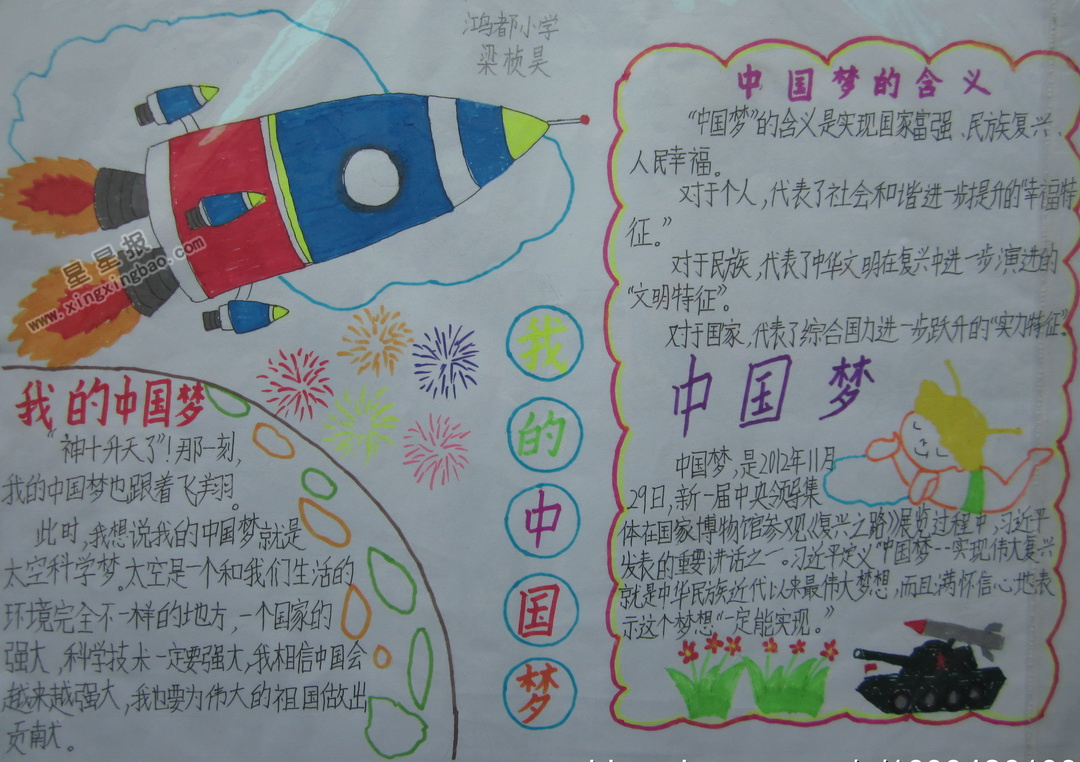 鸿都小学
梁桢昊
星星报
www.xingxingbao.com
我的中国梦
“神十升天了”!那一刻,
我的中国梦也跟着飞翔。
此时,我想说我的中国梦就是
太空科学梦。太空是一个和我们生活的
环境完全不一样的地方,一个国家的
强大,科学技术一定要强大,我相信中国会
越来越强大,我也要为伟大的祖国做出
贡献。
我
的
中
国
梦
中国梦的含义
“中国梦”的含义是实现国家富强、民族复兴、
人民幸福。
对于个人,代表了社会和谐进一步提升的“幸福特
征。”
对于民族,代表了中华文明在复兴中进一步演进的
“文明特征”。
对于国家,代表了综合国力进一步跃升的“实力特征”。
中国梦
中国梦,是2012年11月
29日,新一届中央领导集
体在国家博物馆参观《复兴之路》展览过程中,习近平
发表的重要讲话之一。习近平定义“中国梦--实现伟大复兴
就是中华民族近代以来最伟大梦想,而且满怀信心地表
示这个梦想“一定能实现。”